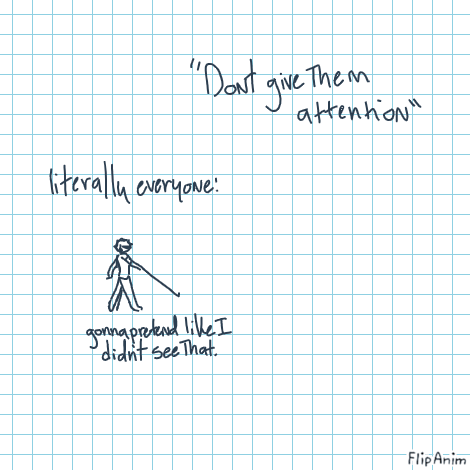 "Don't give them
attention"
literally everyone:
gonna pretend like I
didn't see that.
FlipAnim